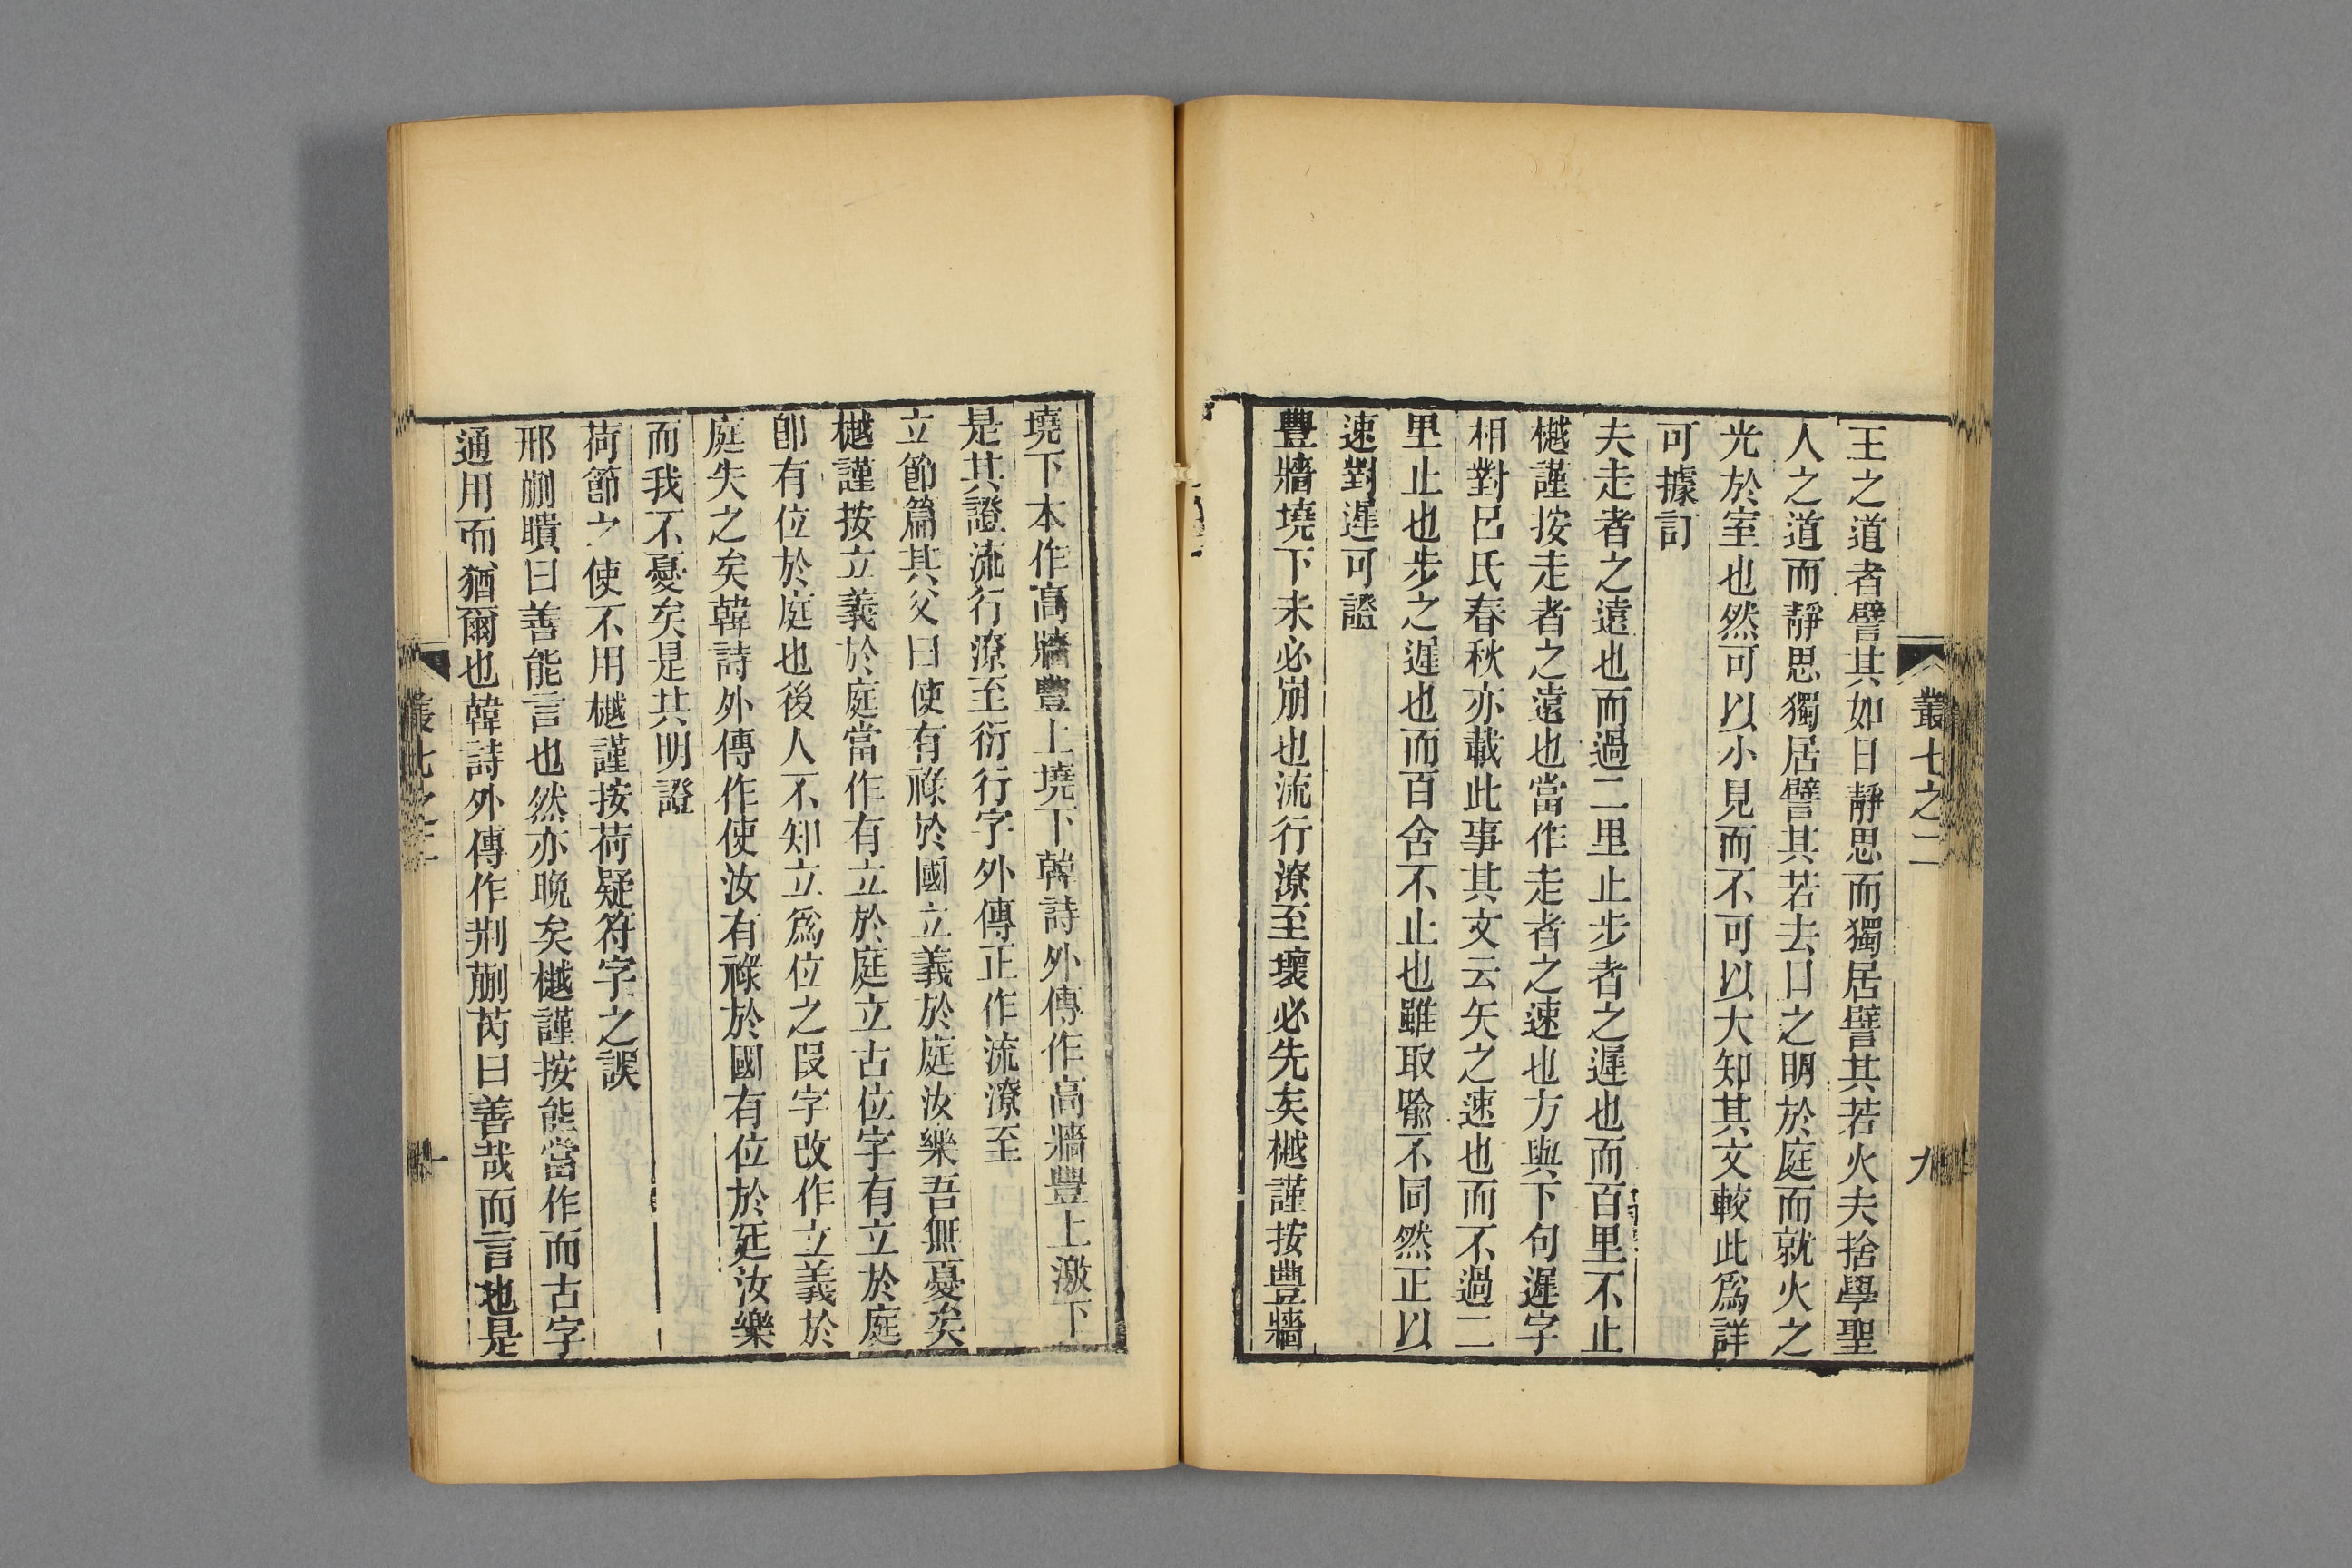 叢七之二
九
王之道者譬其如日靜思而獨居譬其若火夫捨學聖
人之道而靜思獨居譬其若去日之明於庭而就火之
光於室也然可以小見而不可以大知其文較此爲詳
可據訂
夫走者之遠也而過二里止步者之遲也而百里不止
樾謹按走者之遠也當作走者之速也方與下句遲字
相對呂氏春秋亦載此事其文云矢之速也而不過二
里止也步之遲也而百舍不止也雖取喩不同然正以
速對遲可證
豐牆墝下未必崩也流行潦至壞必先矣樾謹按豐牆
墝下本作高牆豐上墝下韓詩外傳作高牆豐上激下
是其證流行潦至衍行字外傳正作流潦至
立節篇其父曰使有祿於國立義於庭汝樂吾無憂矣
樾謹按立義於庭當作有立於庭立古位字有立於庭
卽有位於庭也後人不知立爲位之叚字改作立義於
庭失之矣韓詩外傳作使汝有祿於國有位於廷汝樂
而我不憂矣是其明證
荷節之使不用樾謹按荷疑符字之誤
邢蒯瞶曰善能言也然亦晚矣樾謹按能當作而古字
通用而猶爾也韓詩外傳作荆蒯芮曰善哉而言也是
叢七之二
十